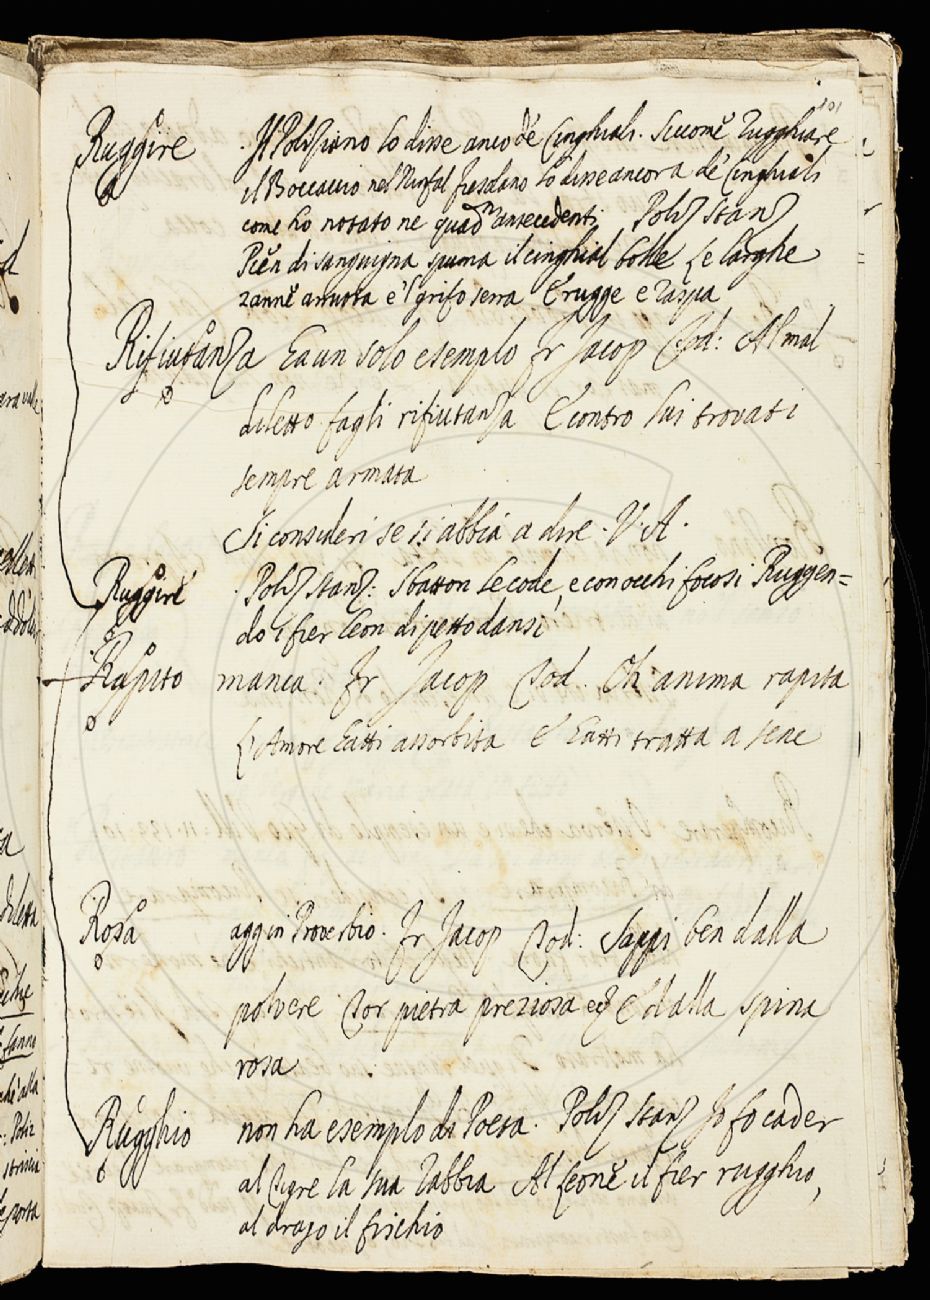 101
Ruggire . Il Poliziano lo disse anco de Cinghiali. Siccome Rugghiare
il Boccaccio nel Ninfal fiesolano lo disse ancora de' Cinghiali
come ho notato ne quadni antecedenti Poliz Stanz
Pien di sanguigna spuma il cinghial bolle Le larghe
zanne arruota e 'l grifo serra E rugge e raspa
Rifiutanza Ea un solo esempio fr Jacop Tod: Al mal
diletto fagli rifiutanza E contro lui trovati
sempre armata
Si consideri se si abbia a dire . V. A .
Ruggire . Poliz Stanz: Sbatton le code, e con occhi focosi Ruggen=
do i fier leon di petto dansi
Rapito manca . Fr Jacop Tod. Oh anima rapita
L'Amore Eatti assorbita E Eatti tratta a sene
Rosa agg in Proverbio . Fr Jacop Tod: Sappi ben dalla
polvere Tor pietra preziosa E dalla spina
rosa
Rugghio non ha esempio di Poesa . Poliz Stanz Jo fo cader
al Tigre la sua rabbia Al leone il fier rugghio,
al drago il fischio